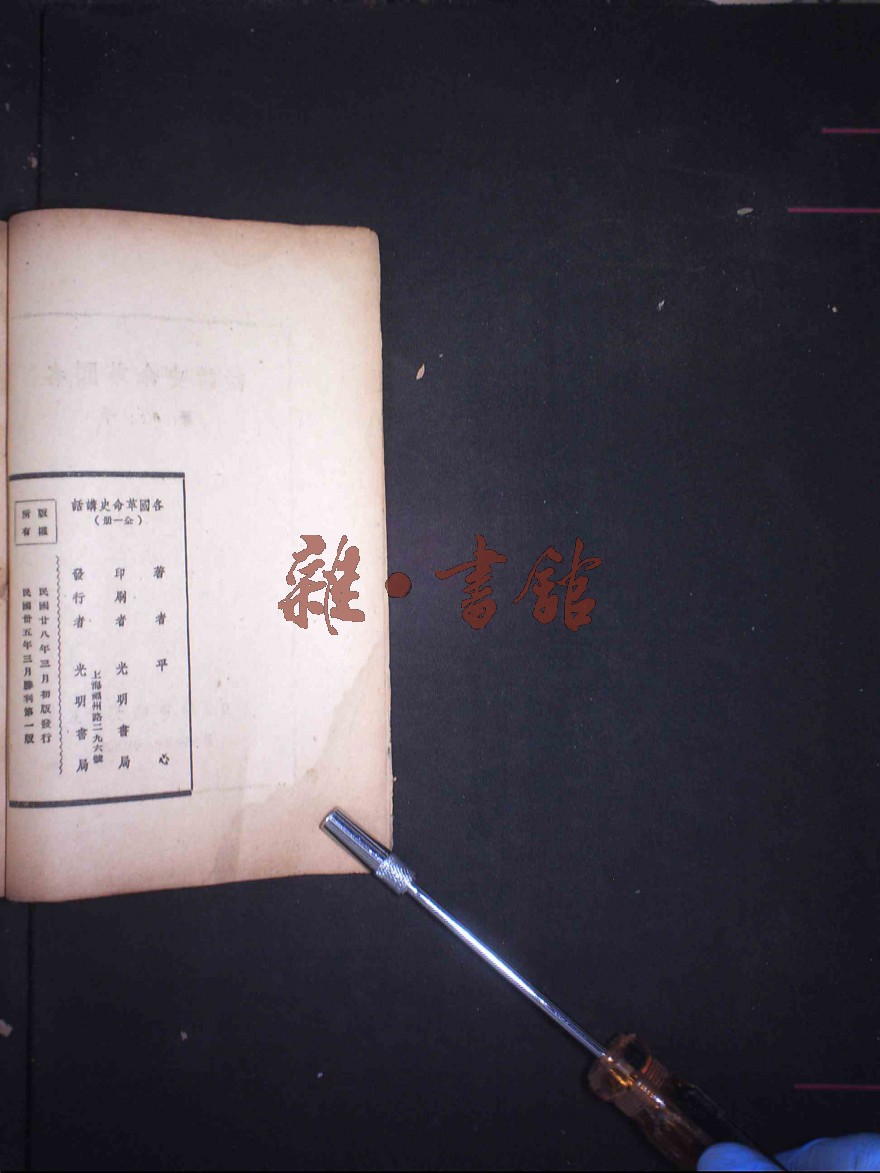 各國革命史講話
（全一册）
著者 平心
印刷者 光明書局
上海福州路二九六號
發行者 光明書局
民國廿八年三月初版發行
民國卅五年三月勝利第一版
版權
所有
雜·書館